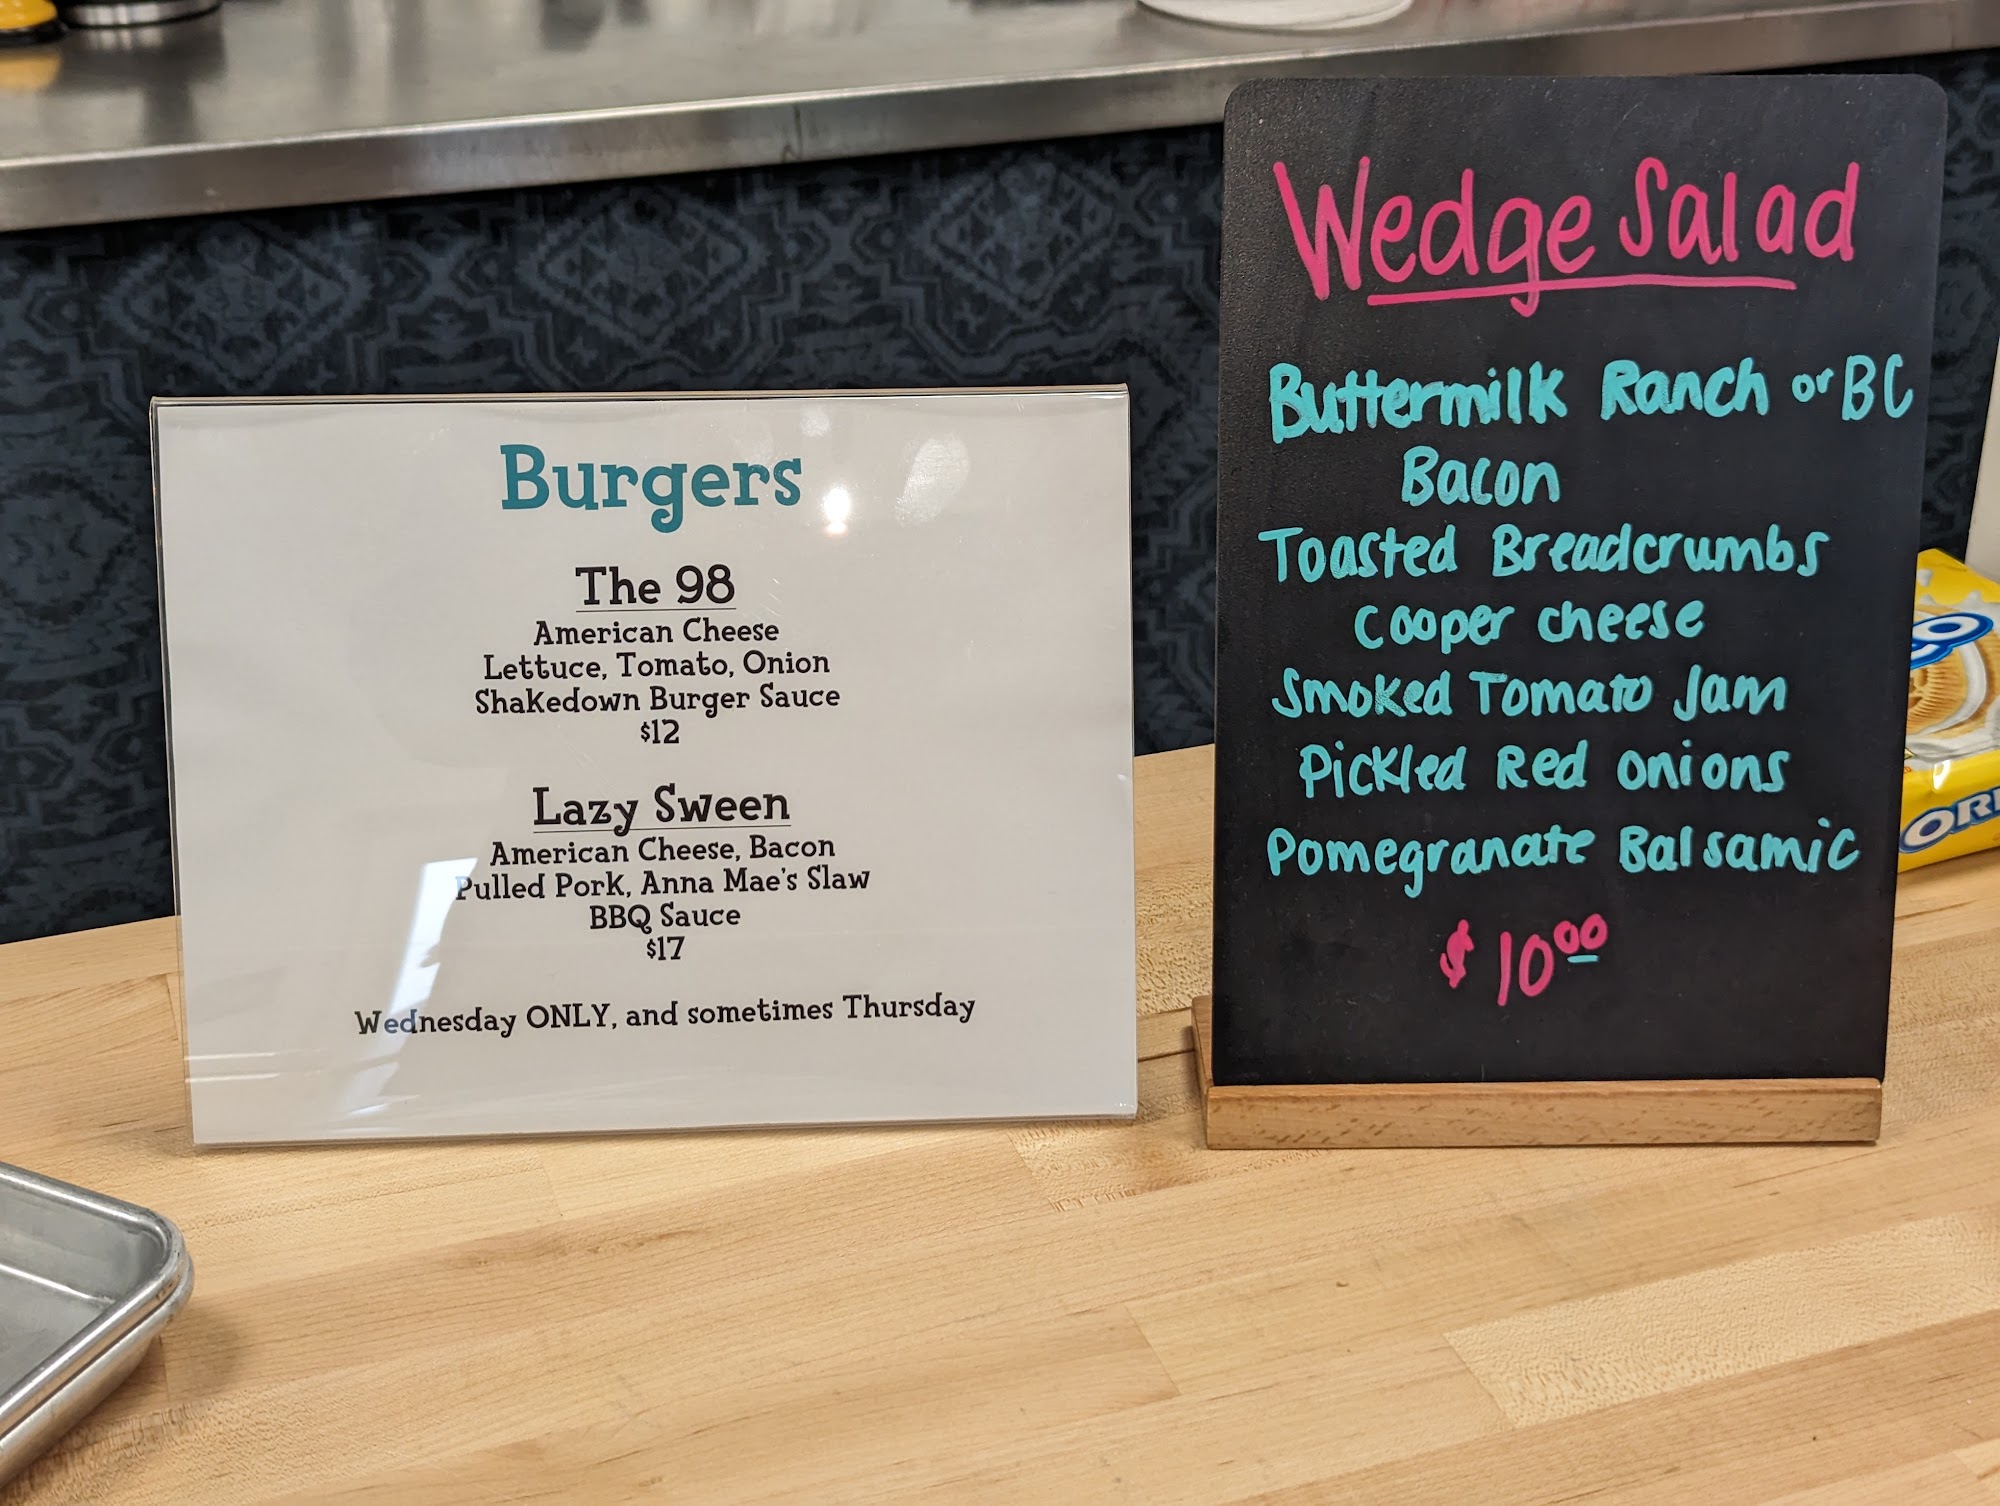 Burgers
The 98
American Cheese
Lettuce, Tomato, Onion
Shakedown Burger Sauce
$12
Lazy Sween
American Cheese, Bacon
Pulled Pork, Anna Mae's Slaw
BBQ Sauce
$17
Wednesday ONLY, and sometimes Thursday
Wedge Salad
Buttermilk Ranch or BC
Bacon
Toasted Breadcrumbs
Cooper cheese
Smoked Tomato Jam
Pickled Red Onions
Pomegranate Balsamic
$10⁰⁰